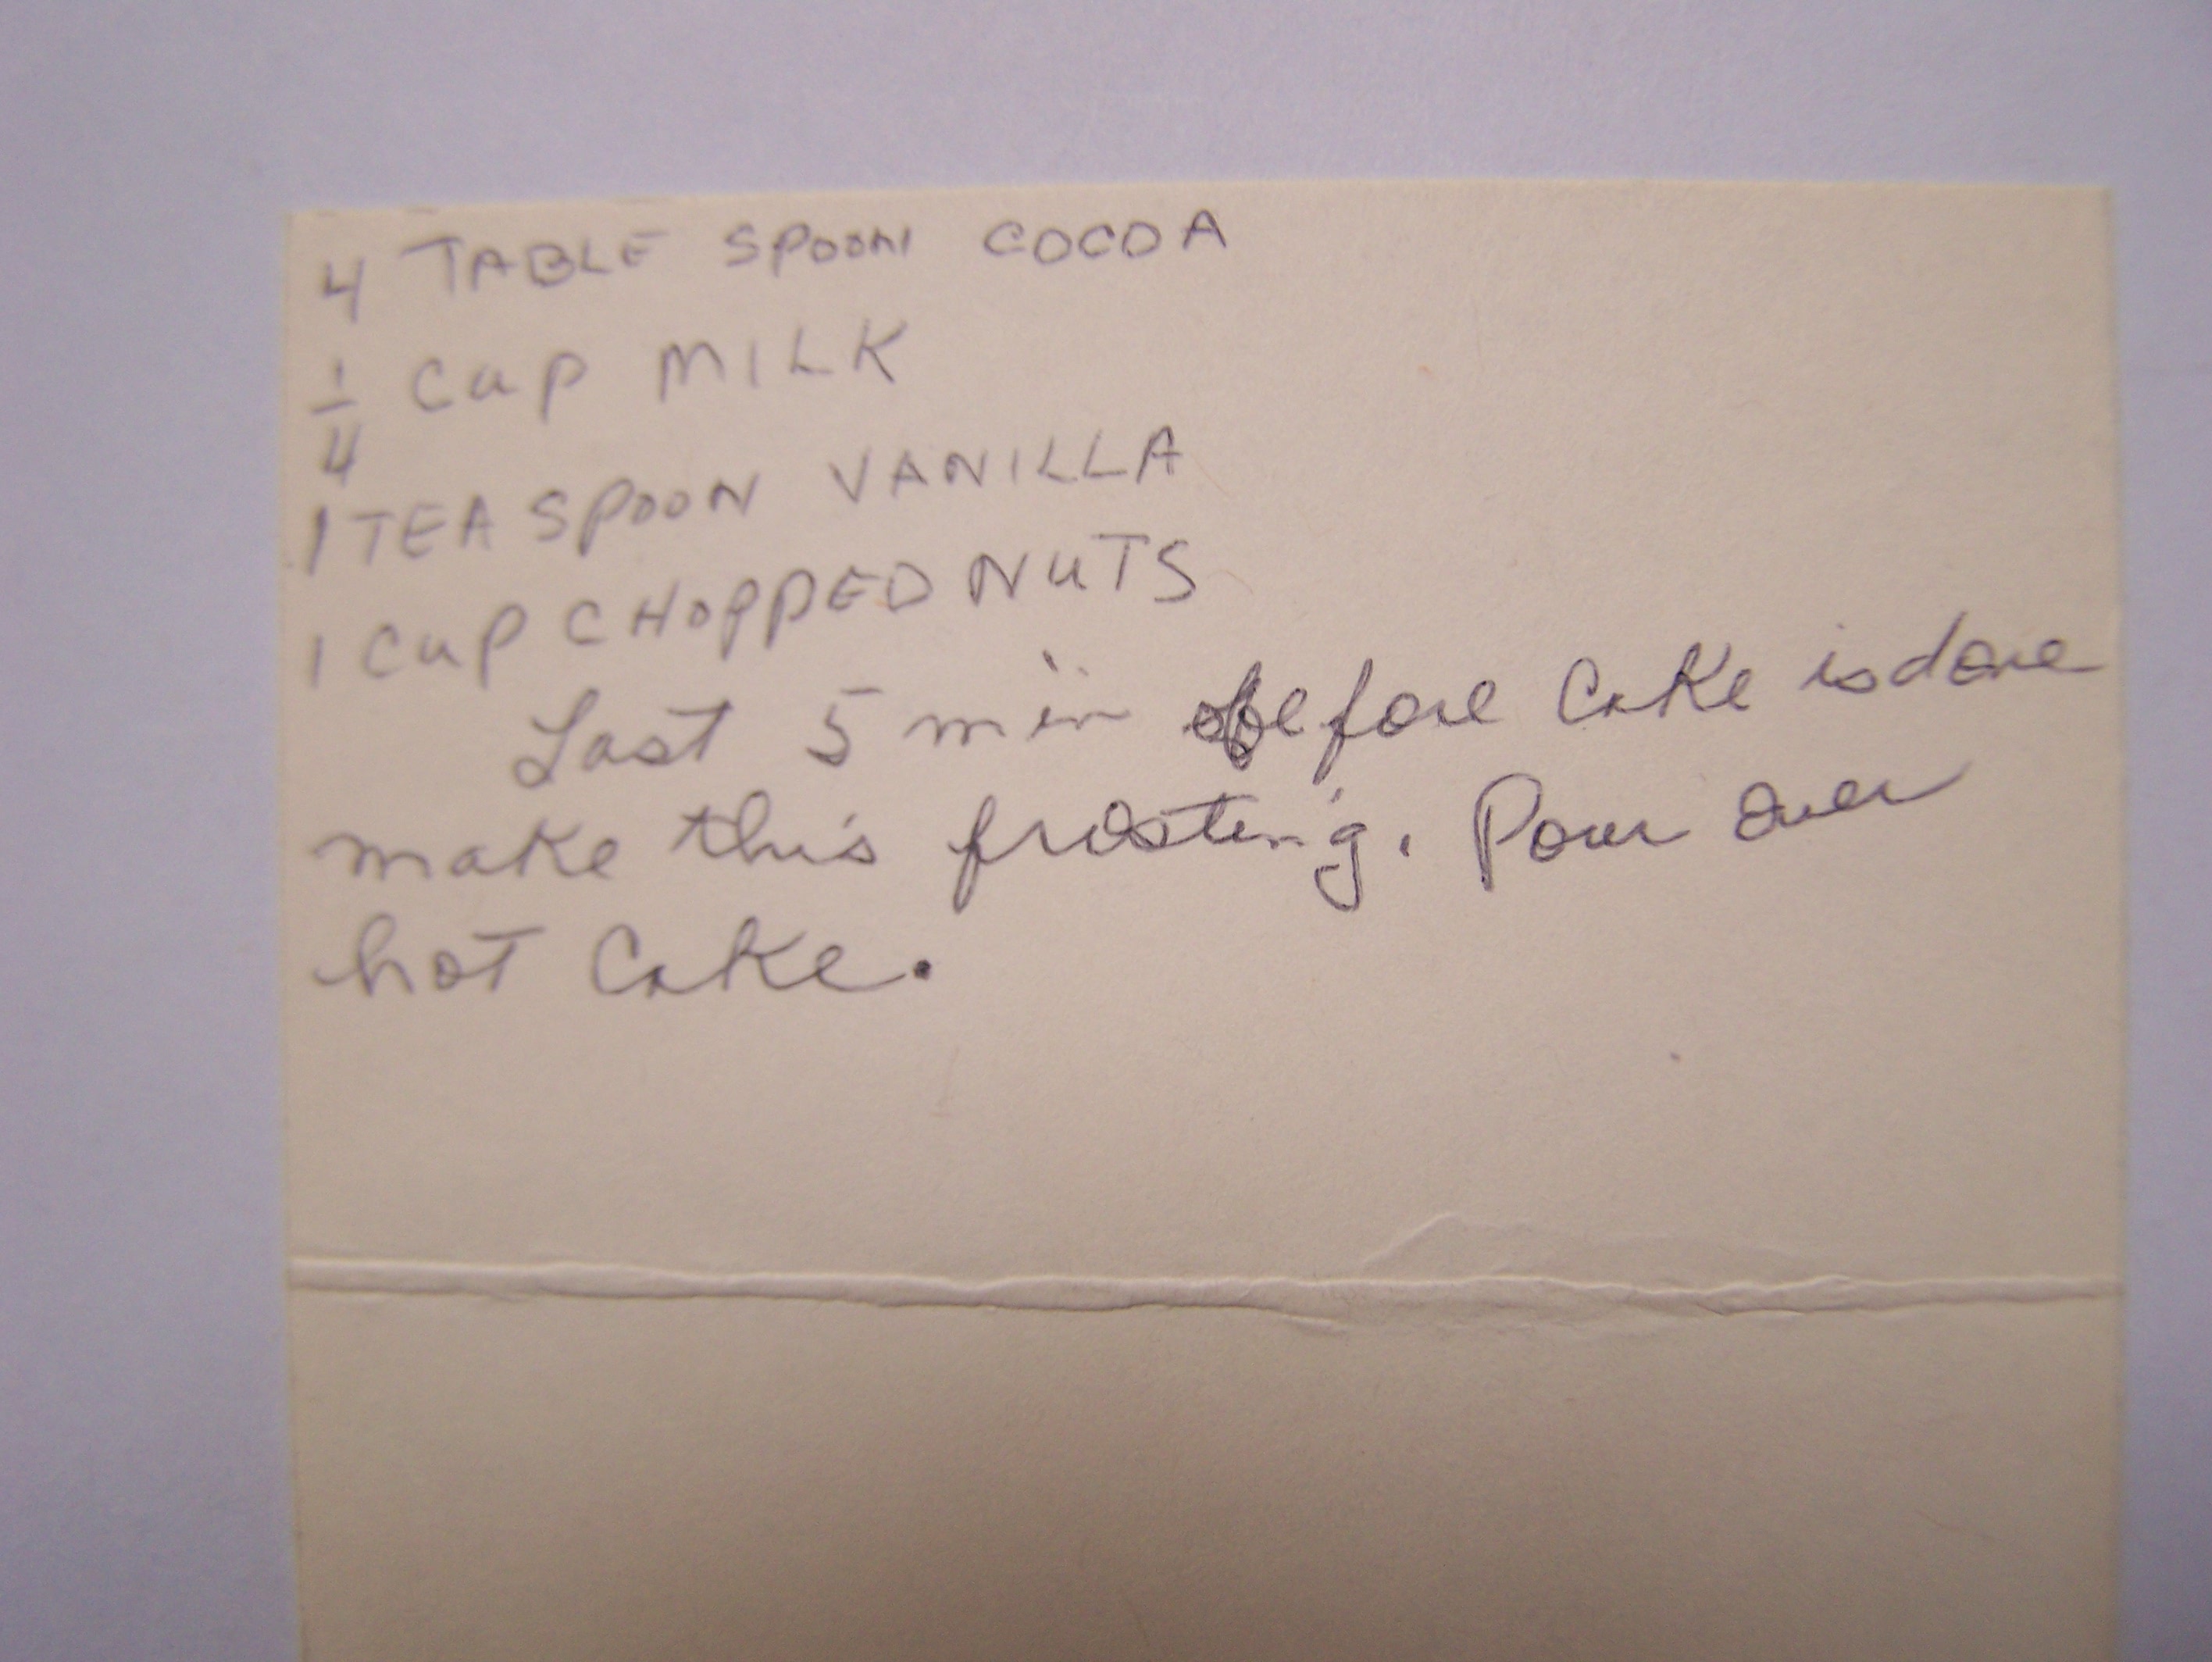 4 TABLE SPOON COCOA
1/4 Cup MILK
1 TEASPOON VANILLA
1 Cup CHOPPED NUTS
Last 5 min before Cake is done
make this frosting. Pour over
hot Cake.